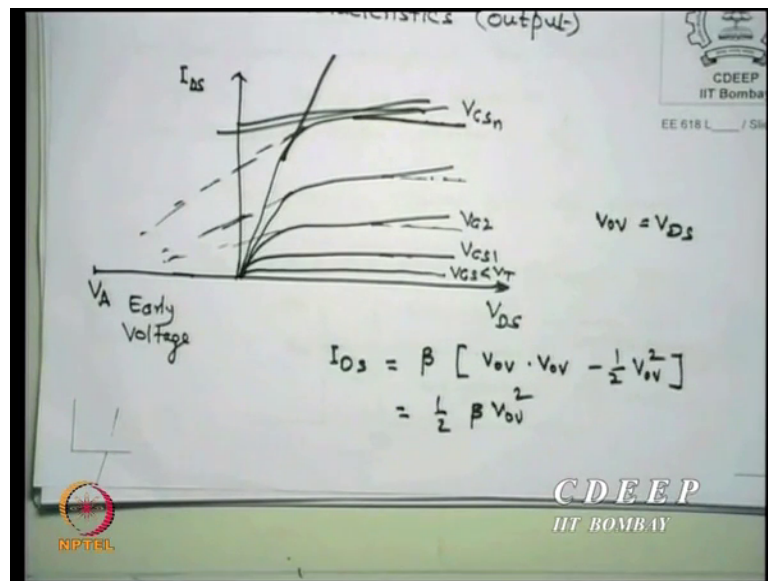 (output)
CDEEP
IIT Bombay
EE 618 L____ / Sli
I_DS
V_GSn
V_G2
V_GS1
V_GS < V_T
V_OV = V_DS
V_A
Early
Voltage
V_DS
I_DS = β [ V_OV · V_OV - 1/2 V_OV^2 ]
= 1/2 β V_OV^2
CDEEP
IIT BOMBAY
NPTEL